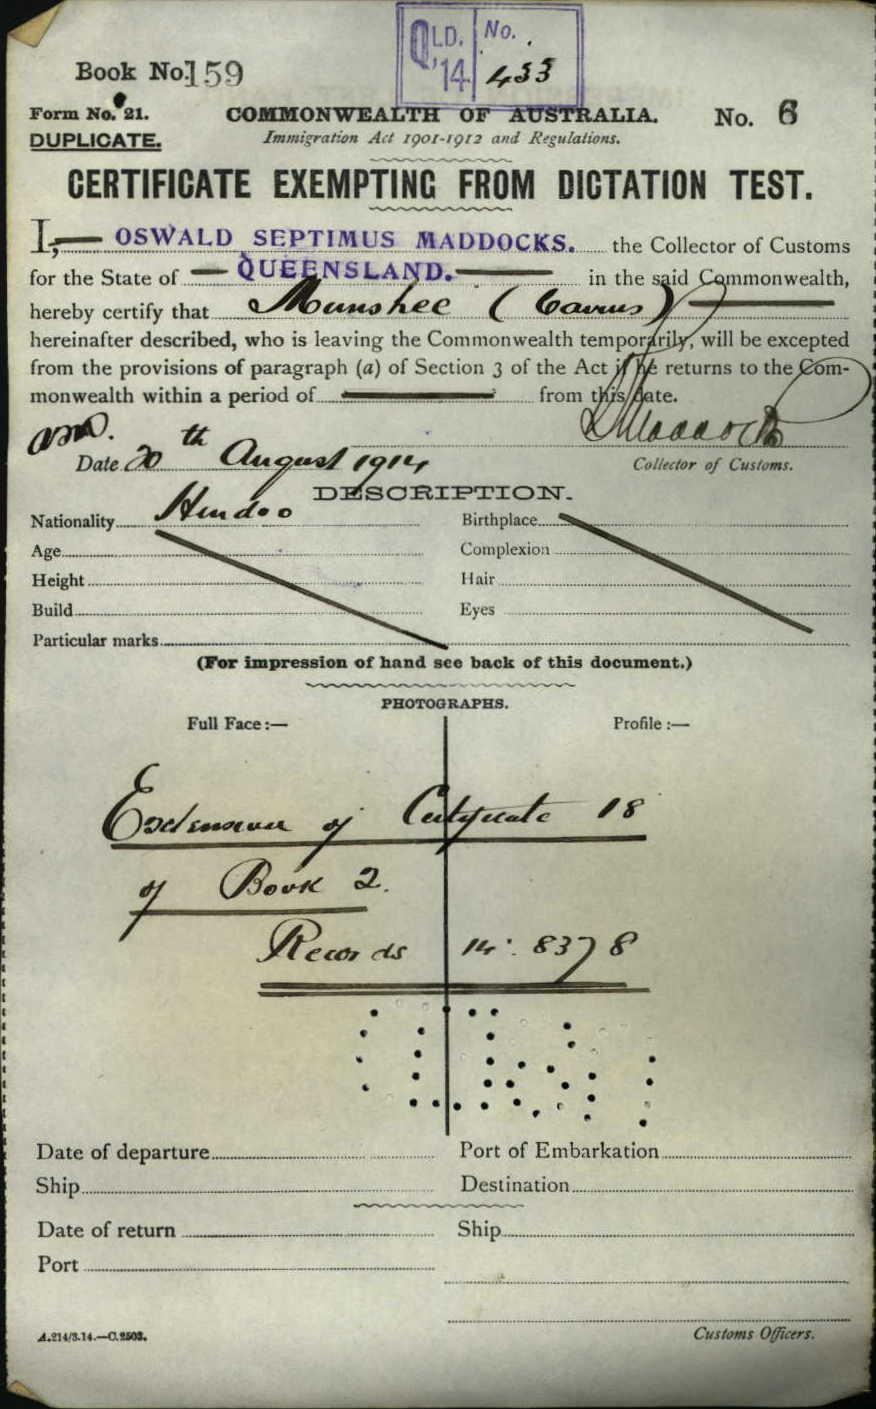 QLD. No.
'14 433
Book No. 159
Form No. 21. COMMONWEALTH OF AUSTRALIA. No. 6
DUPLICATE. Immigration Act 1901-1912 and Regulations.
CERTIFICATE EXEMPTING FROM DICTATION TEST.
I, OSWALD SEPTIMUS MADDOCKS. the Collector of Customs
for the State of QUEENSLAND. in the said Commonwealth,
hereby certify that Munshee (Cawnus)
hereinafter described, who is leaving the Commonwealth temporarily, will be excepted
from the provisions of paragraph (a) of Section 3 of the Act if he returns to the Com-
monwealth within a period of from this date.
OSMaddocks
Date 20th August 1914 Collector of Customs.
DESCRIPTION.
Nationality Hindoo Birthplace
Age Complexion
Height Hair
Build Eyes
Particular marks
(For impression of hand see back of this document.)
PHOTOGRAPHS.
Full Face :— Profile :—
Extension of Certificate 18
of Book 2.
Records 14: 8378
Date of departure Port of Embarkation
Ship Destination
Date of return Ship
Port
A.214/3.14.—C.2503. Customs Officers.